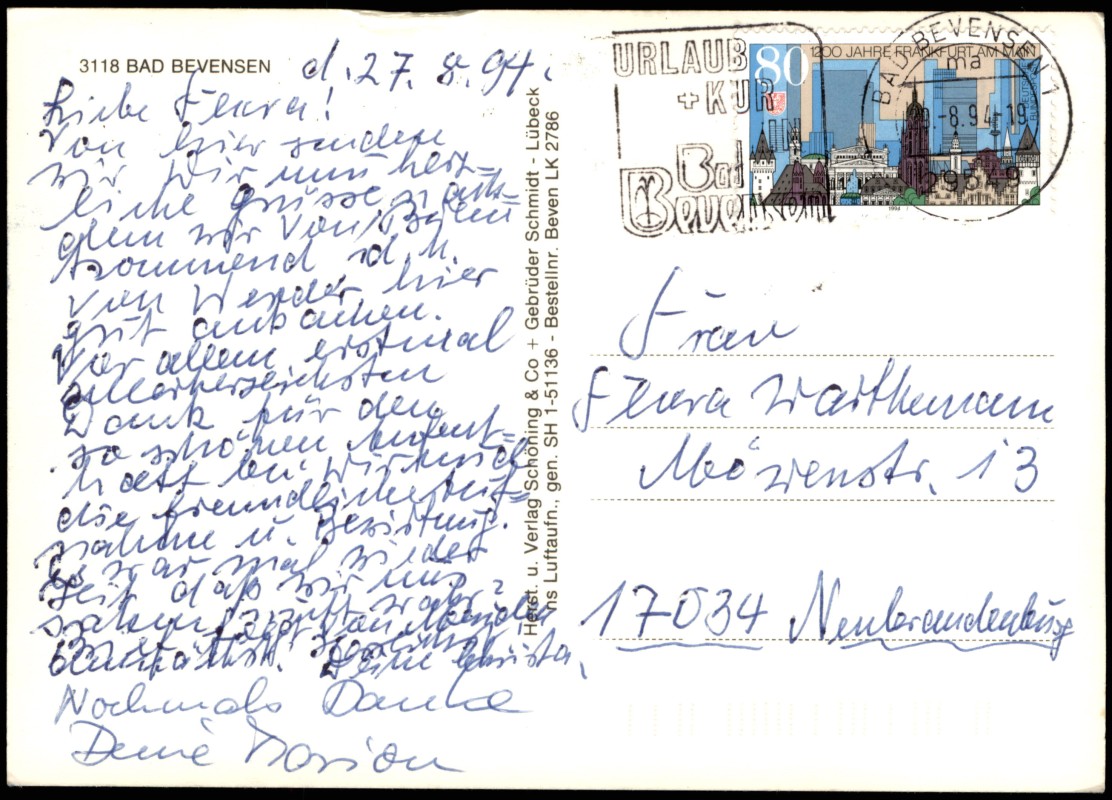 3118 BAD BEVENSEN
d. 27.8.94.
Liebe Flora!
Von hier senden
wir Dir nun herz=
liche Grüsse, nach=
dem wir von
kommend d. h.
von Werder hier
gut ankamen.
Vor allem erstmal
allerherzlichsten
Dank für den
so schönen Aufent=
halt bei Dir und
die freundliche Auf=
nahme u. Bewirtung.
Es war mal wieder
Zeit daß wir uns
sahen
Deine Christa,
Nochmals Danke
Deine Marion
Herst. u. Verlag Schöning & Co + Gebrüder Schmidt - Lübeck
ns Luftaufn., gen. SH 1-51136 - Bestellnr. Beven LK 2786
URLAUB
+ KUR
Bad
Bevensen
80
1200 JAHRE FRANKFURT AM MAIN
DEUTSCHE BUNDESPOST
1994
BAD BEVENSEN 1
ma
-8.94-19
29549
Frau
Flora Warthemann
Mözenstr. 13
17034 Neubrandenburg